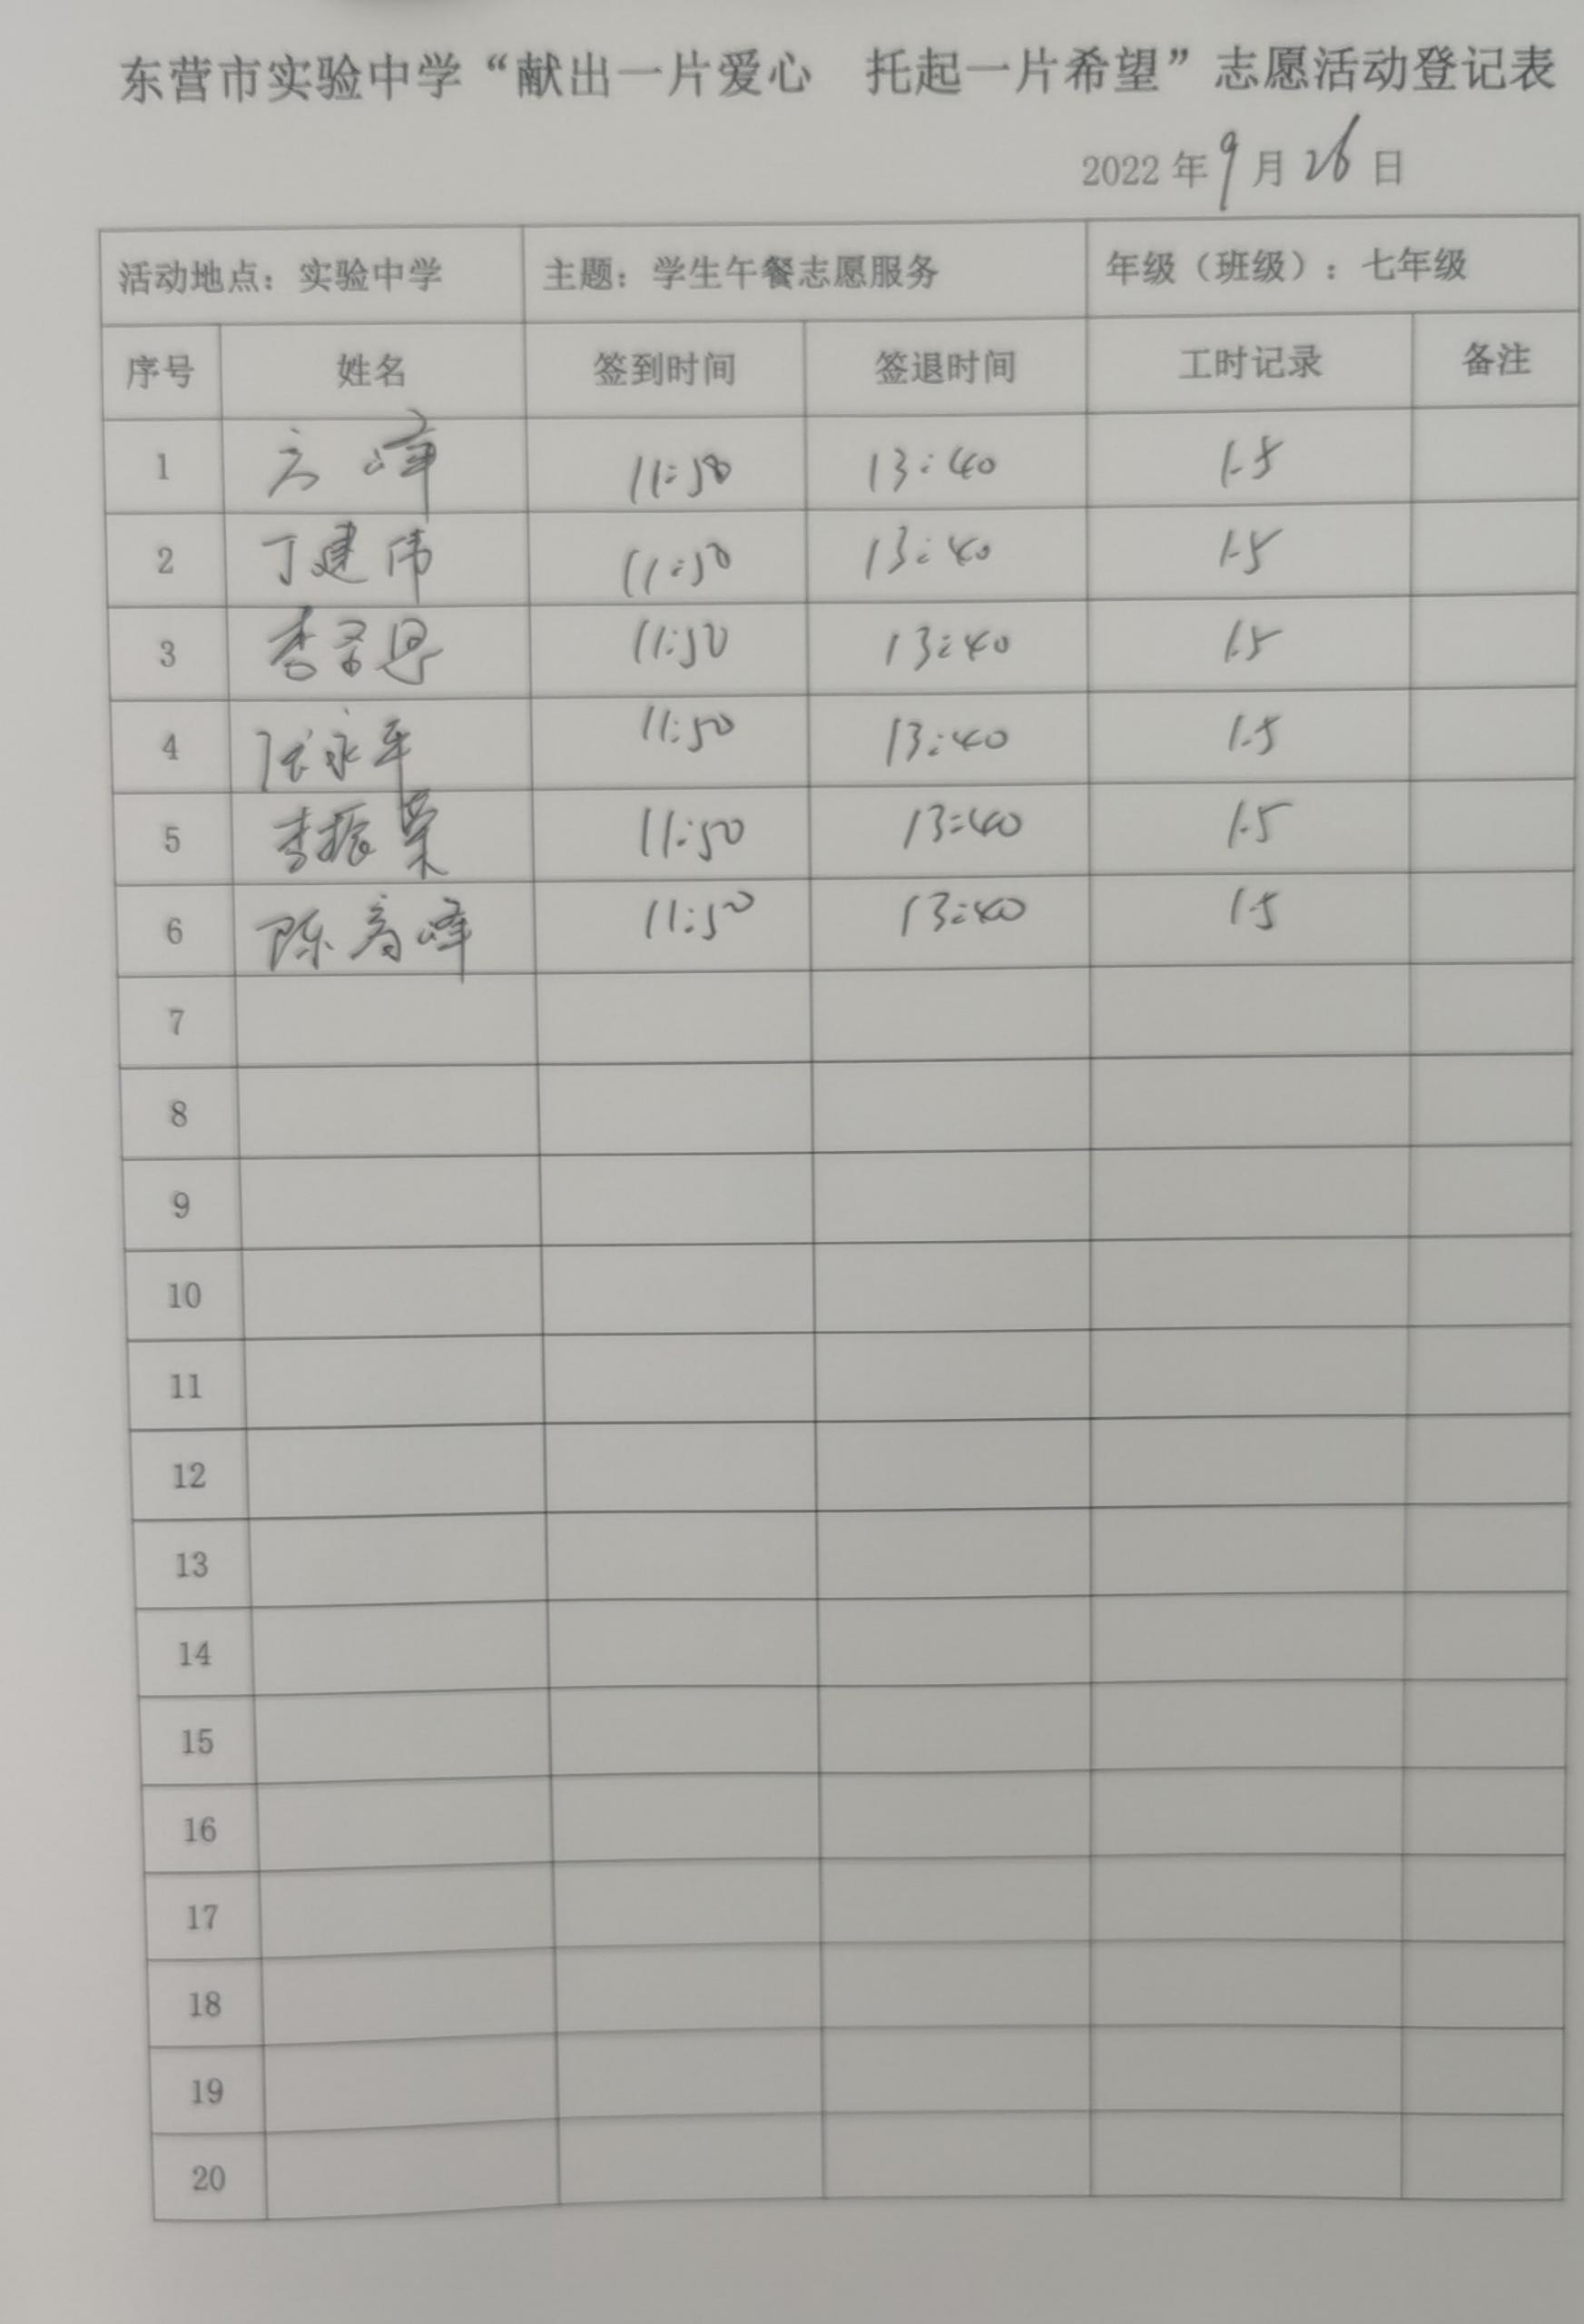 东营市实验中学“献出一片爱心　托起一片希望”志愿活动登记表
2022年9月26日
活动地点：实验中学 主题：学生午餐志愿服务 年级（班级）：七年级
序号 姓名 签到时间 签退时间 工时记录 备注
1 方峰 11:50 13:40 1.5
2 丁建伟 11:50 13:40 1.5
3 李 11:50 13:40 1.5
4 张永平 11:50 13:40 1.5
5 李振荣 11:50 13:40 1.5
6 陈高峰 11:50 13:40 1.5
7
8
9
10
11
12
13
14
15
16
17
18
19
20